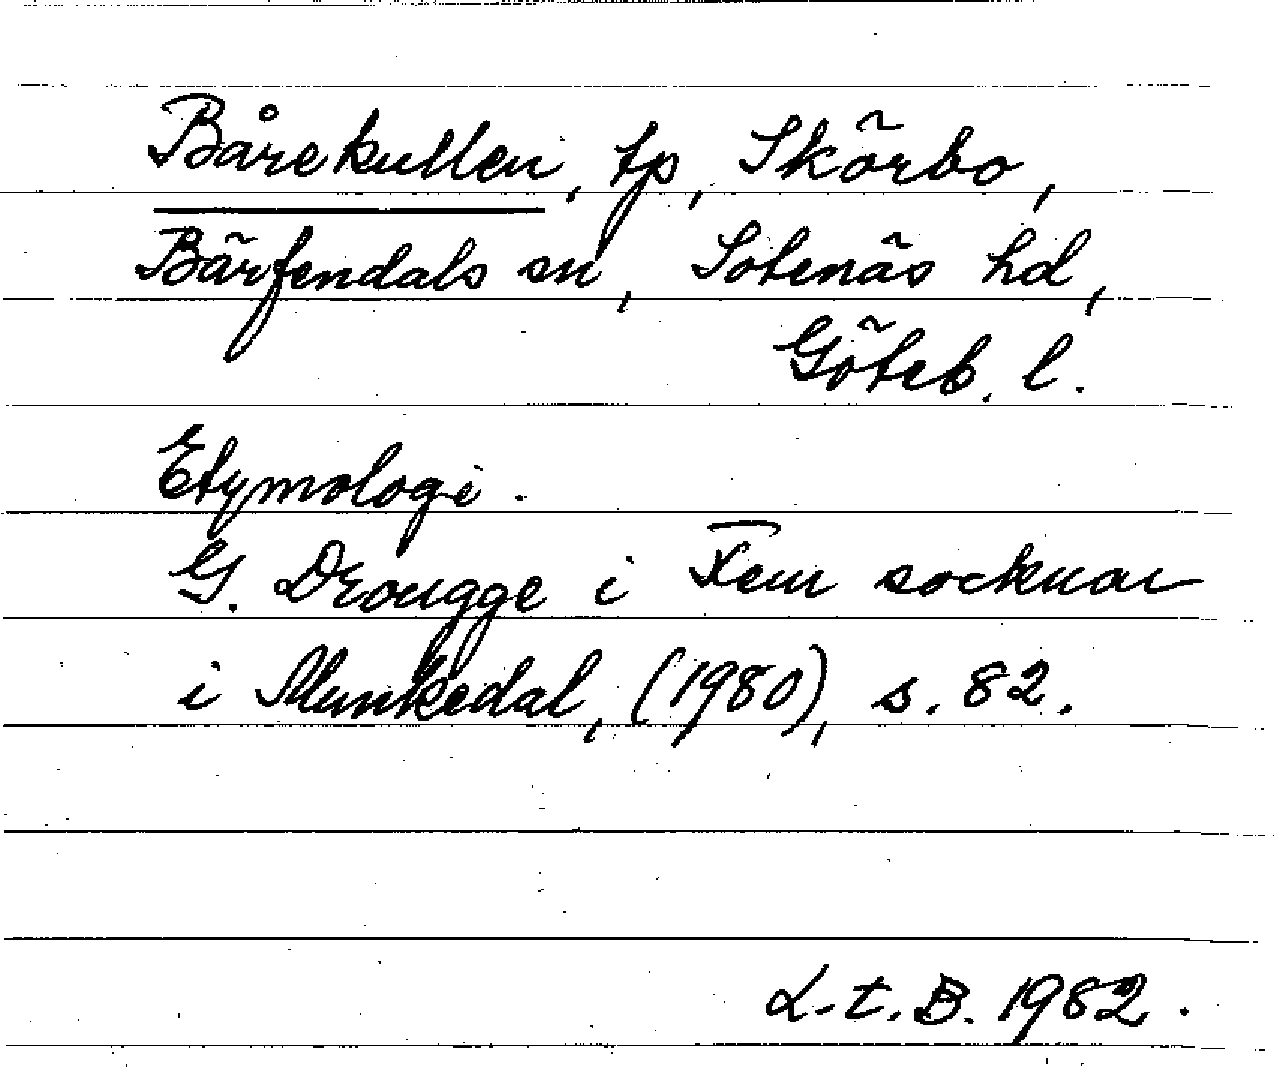 Bårekullen, tp, Skörbo,
Bärfendals sn, Sotenäs hd,
Göteb. l.
Etymologi.
G. Drougge i Fem socknar
i Munkedal, (1980), s. 82.
L.t.B. 1982.